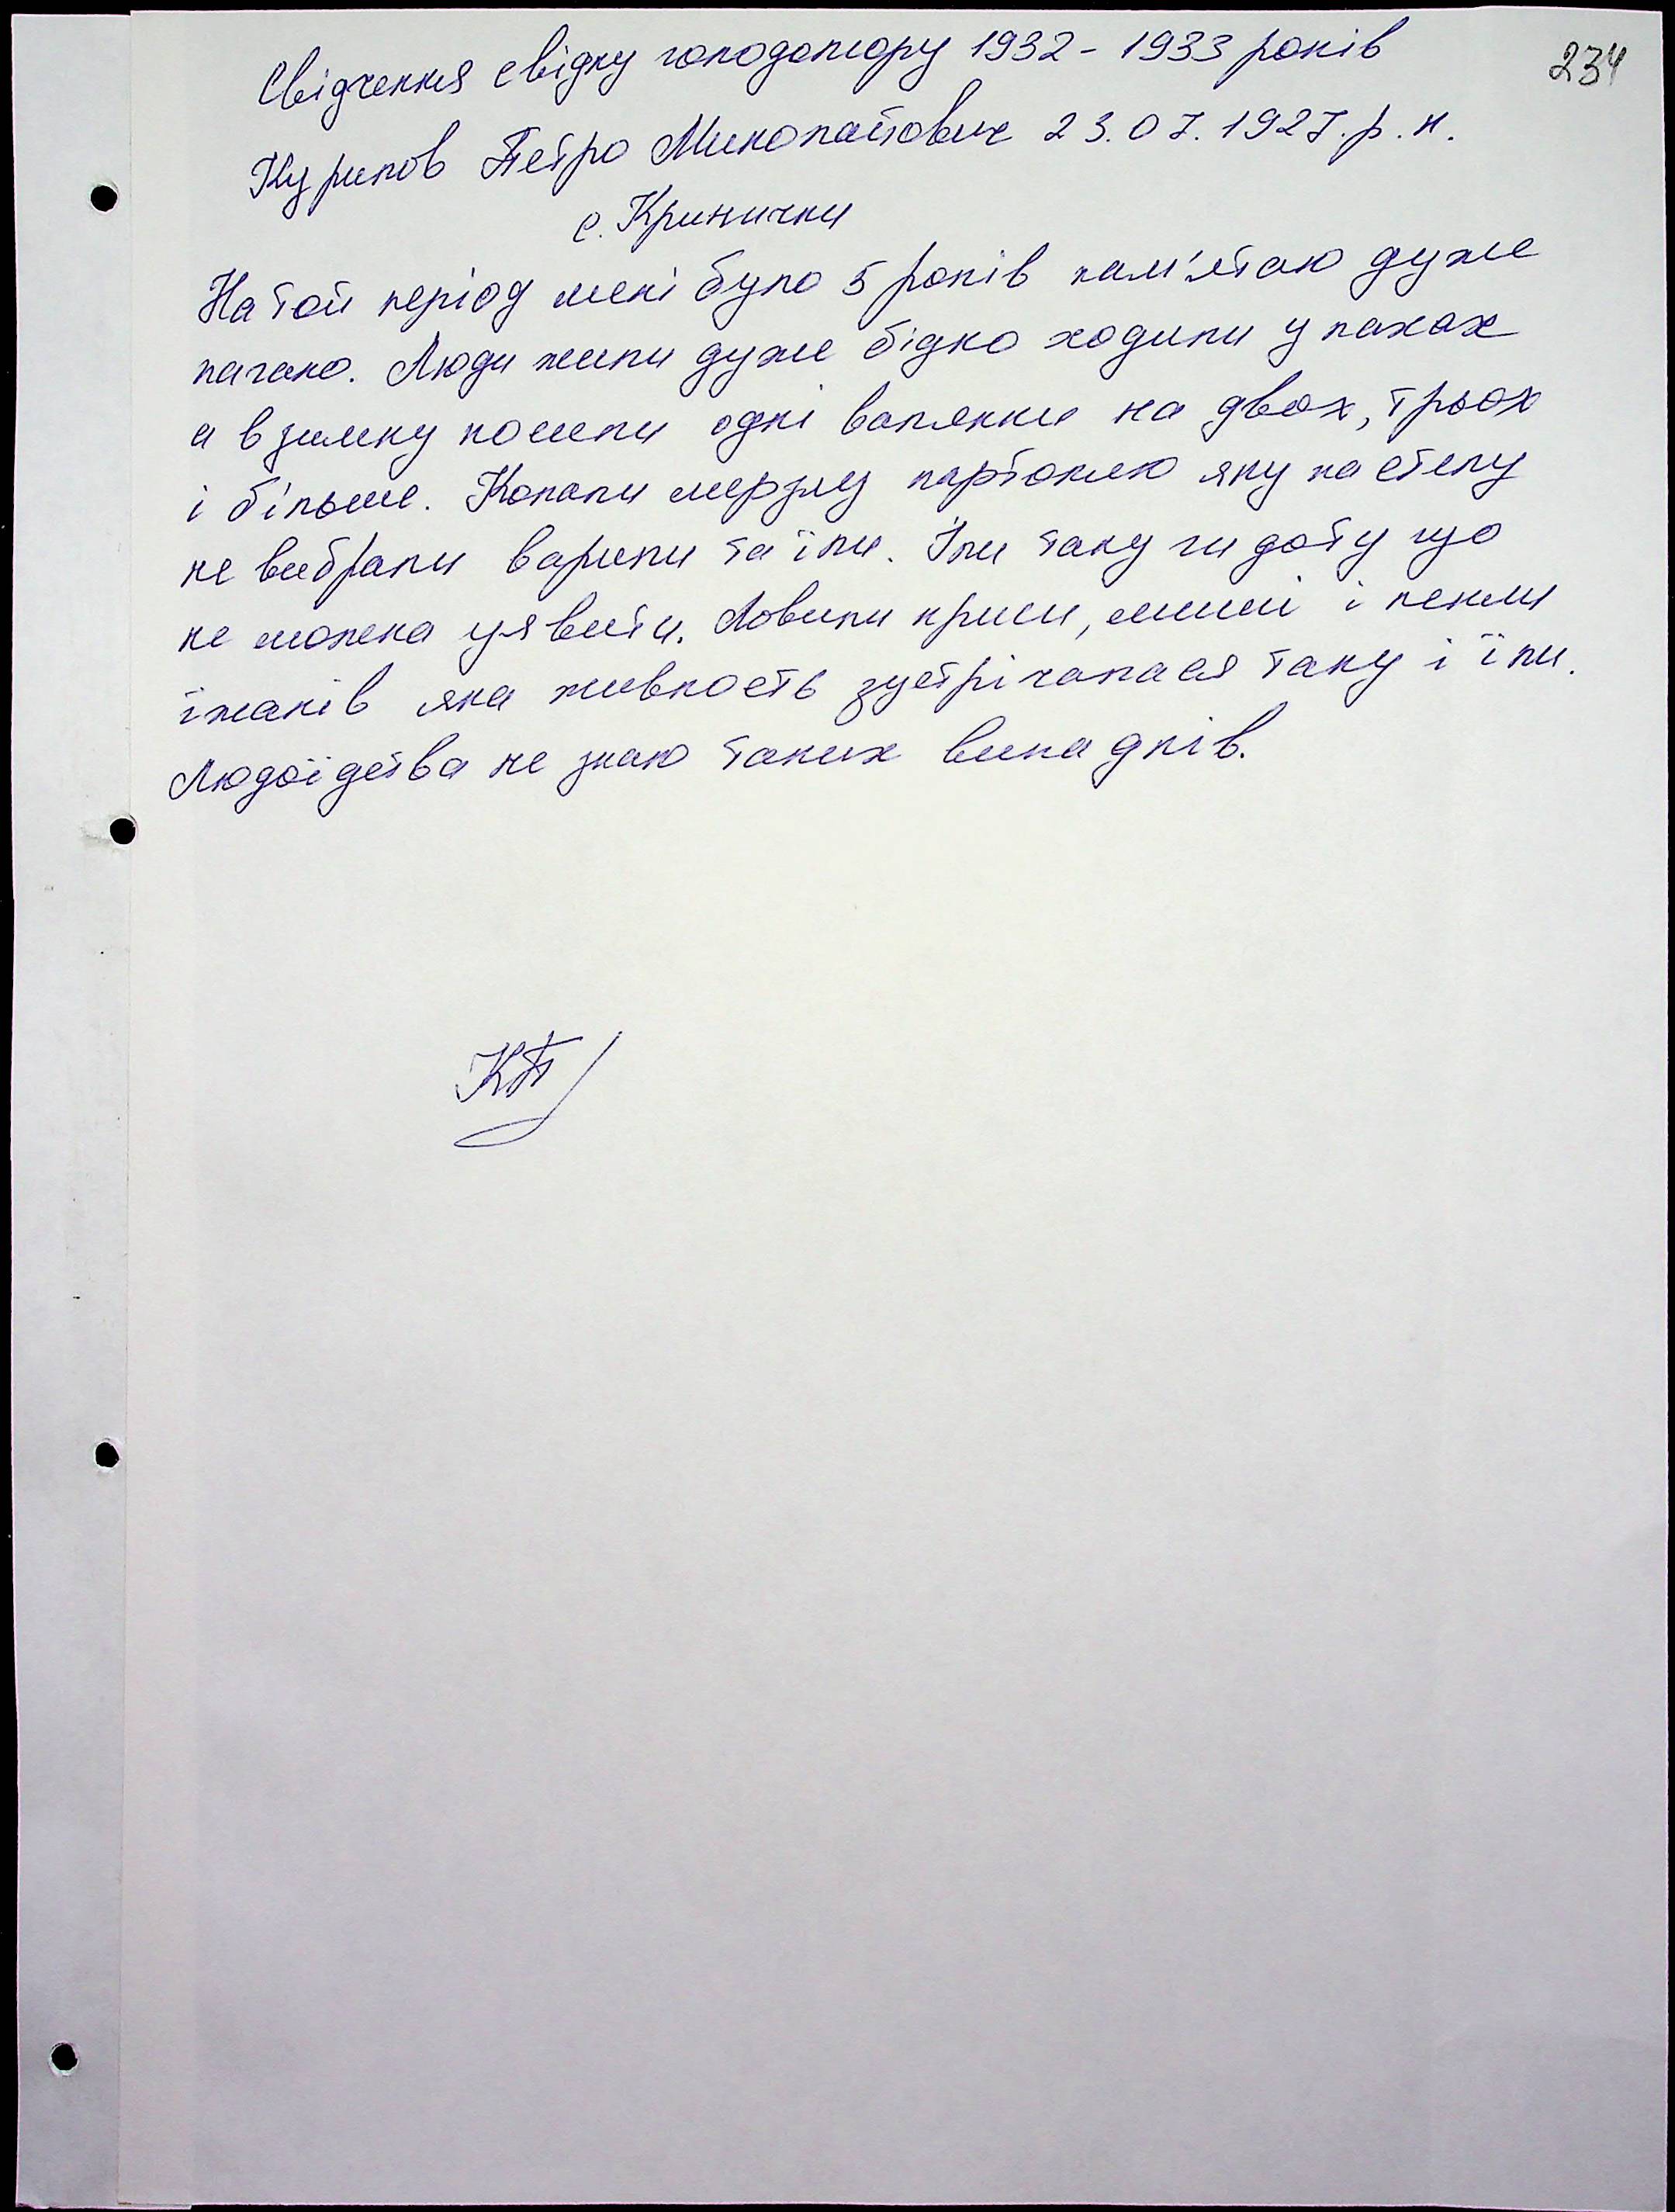 234
Свідчення свідку голодомору 1932 - 1933 років
Курилов Петро Миколайович 23.07.1927.р.н.
с. Кринички
На той період мені було 5 років пам'ятаю дуже
пагано. Люди жили дуже бідно ходили у лахах
а в зимку носили одні валянки на двох, трьох
і більше. Копали мерзлу картоплю яку на степу
не вибрали варили та їли. Їли таку гидоту що
не можна уявити. Ловили криси, миші і
їжаків яка живность зустрічалася таку і їли.
Людоїдства не знаю таких випадків.
КП